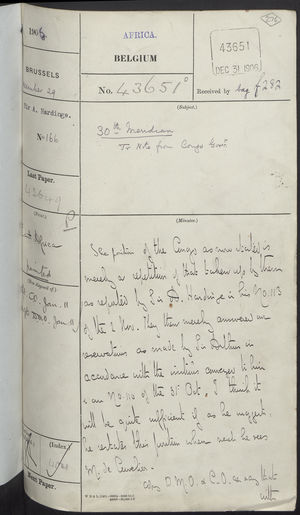 1906
BRUSSELS
Sir A. Hardinge.
No 166
Last Paper.
(Print)
Africa
Printed
(How disposed of)
C.O. Jan. 11
D.M.O. Jan. 11
(Index)
Next Paper.
AFRICA.
BELGIUM
No. 43651
43651
DEC 31 1906
Received by bag f 282
(Subject.)
30th Meridian
Tr Note from Congo Govt
(Minutes.)
The position of the Congo as now stated is
merely a repetition of that taken up by them
as reported by Sir A. Hardinge in his No. 113
of the 2 Nov. They then merely answered our
reservations as made by Sir Arthur in
accordance with the instructions conveyed to him
in our No. 110 of the 31 Oct. I think it
will be quite sufficient if, as he suggests,
he restates this position when next he sees
M. de Cuvelier.
Copy D.M.O. & C.O. as say that
with